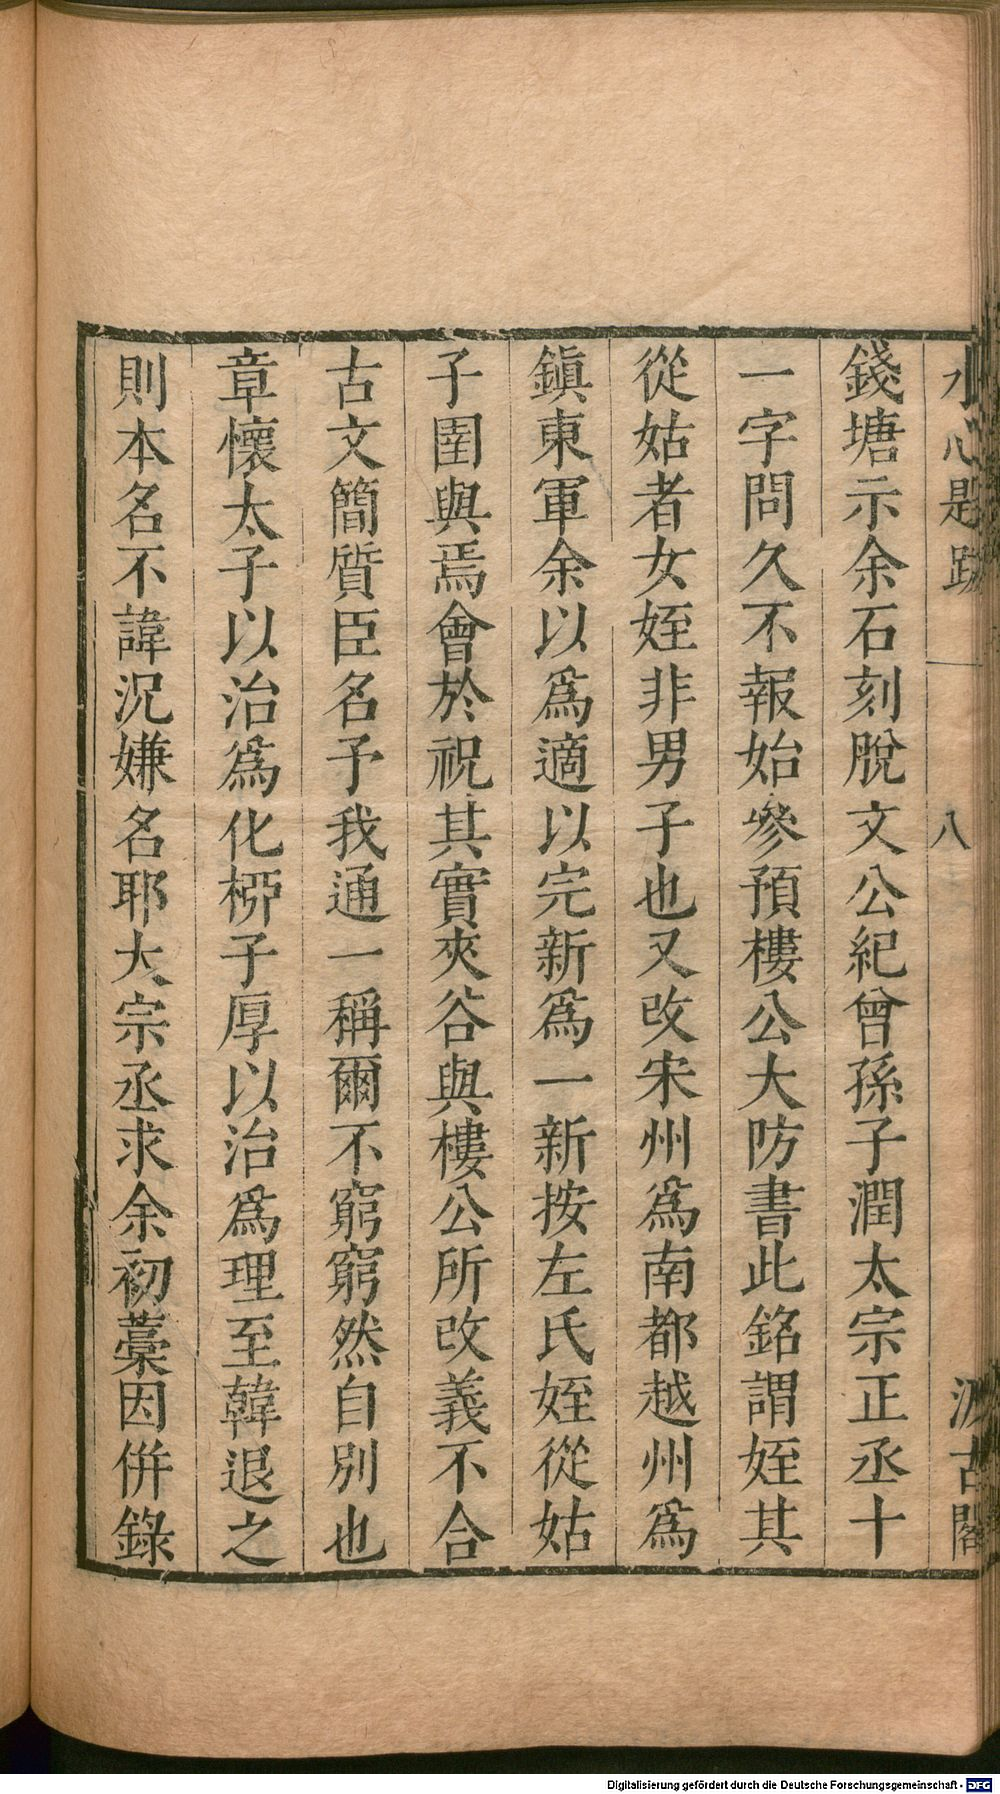 水心題跋 八 汲古閣
錢塘示余石刻脫文公紀曾孫子潤太宗正丞十
一字問久不報始參預樓公大防書此銘謂姪其
從姑者女姪非男子也又改宋州爲南都越州爲
鎮東軍余以爲適以完新爲一新按左氏姪從姑
子圉與焉會於祝其實夾谷與樓公所改義不合
古文簡質臣名予我通一稱爾不窮窮然自別也
章懷太子以治爲化栁子厚以治爲理至韓退之
則本名不諱況嫌名耶大宗丞求余初藁因併錄
Digitalisierung gefördert durch die Deutsche Forschungsgemeinschaft - DFG